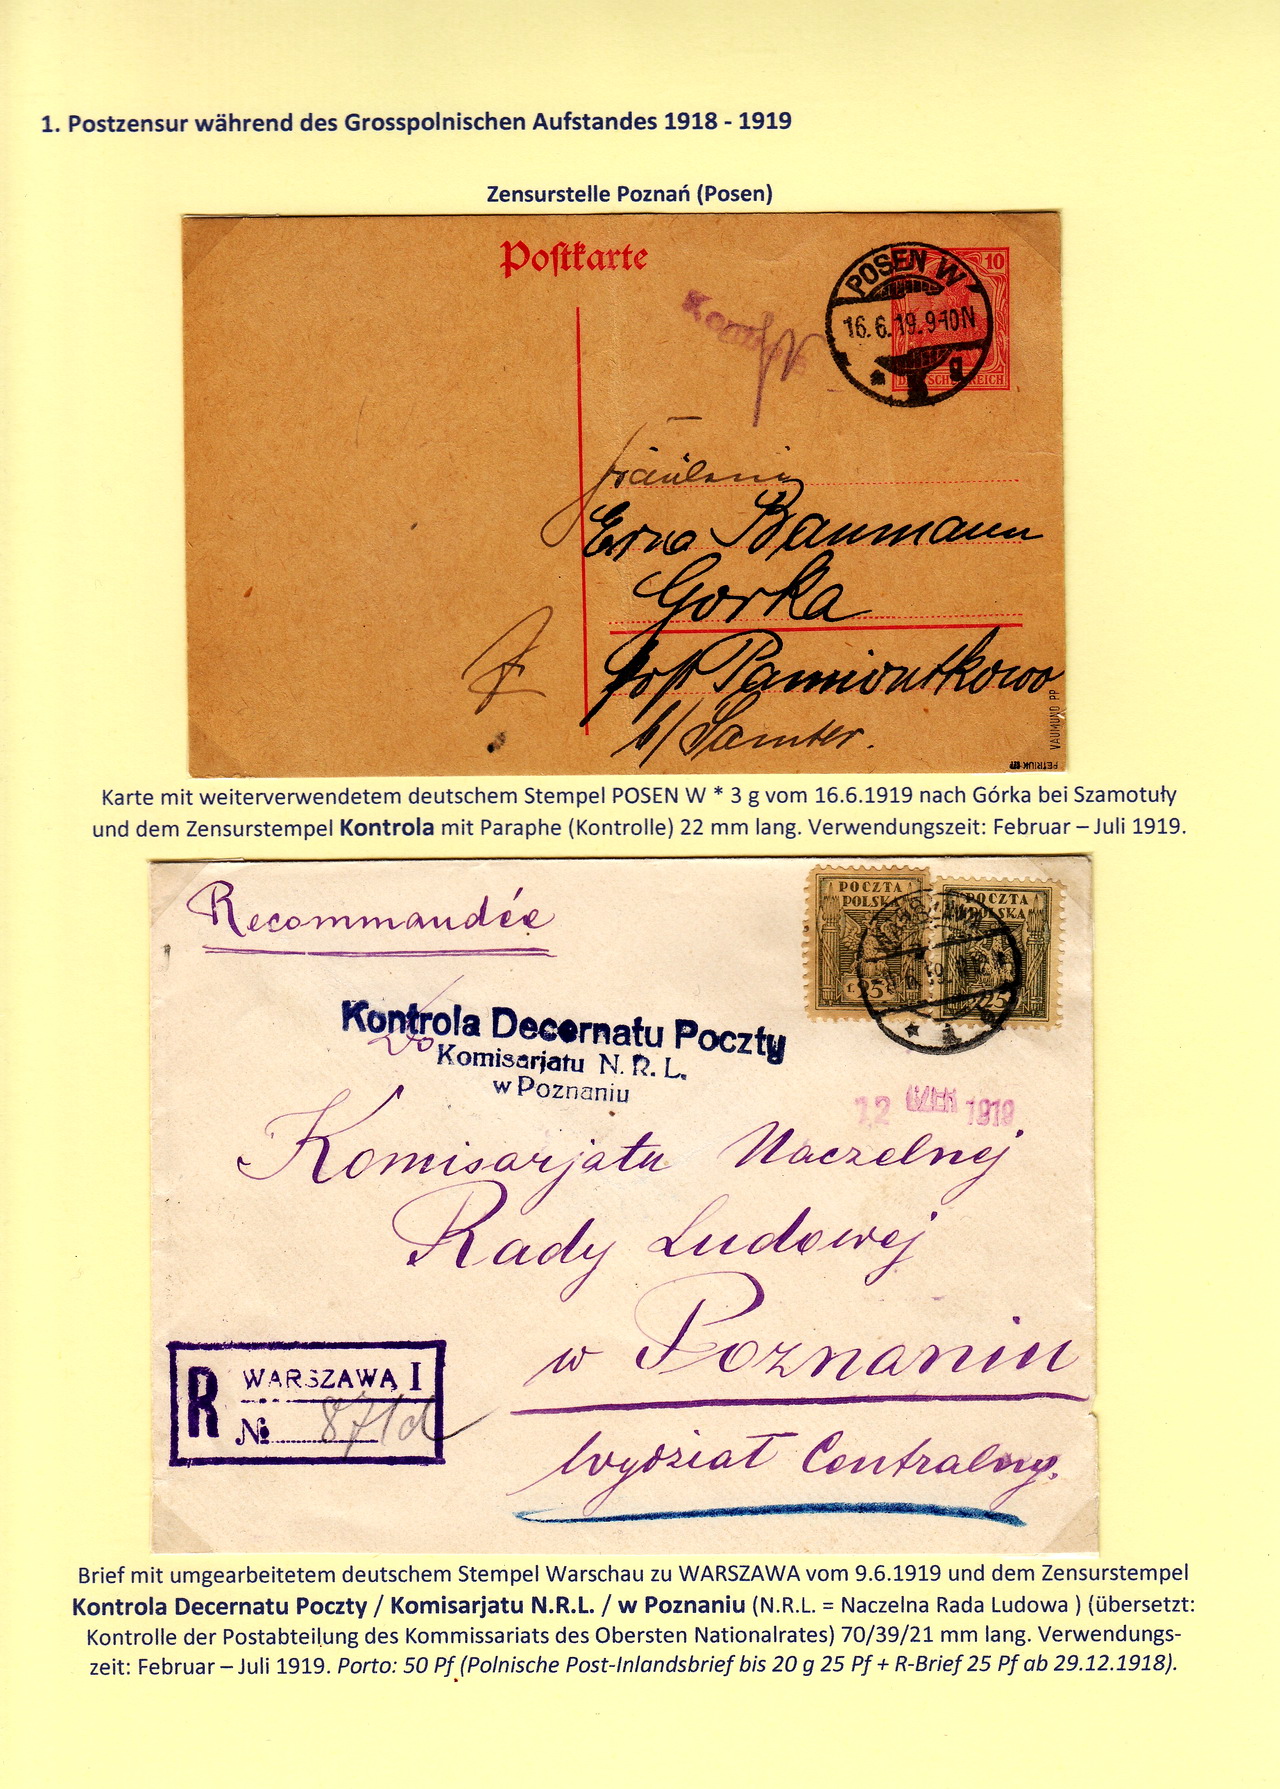 1. Postzensur während des Grosspolnischen Aufstandes 1918 - 1919
Zensurstelle Poznań (Posen)
Postkarte
POSEN W
10
16.6.19.9-10N
* g
DEUTSCHES REICH
Fräulein
Erna Baumann
Gorka
Post Pamiontkowo
b/ Samter.
VAUMUND PP
PETRIUK
Karte mit weiterverwendetem deutschem Stempel POSEN W * 3 g vom 16.6.1919 nach Górka bei Szamotuły
und dem Zensurstempel Kontrola mit Paraphe (Kontrolle) 22 mm lang. Verwendungszeit: Februar – Juli 1919.
Recommandée
POCZTA POLSKA
POCZTA POLSKA
25
25
Kontrola Decernatu Poczty
Do
Komisarjatu N. R. L.
w Poznaniu
12 1919
Komisarjatu Naczelnej
Rady Ludowej
w Poznaniu
R WARSZAWA I
№ 871d
Wydział Centralny.
Brief mit umgearbeitetem deutschem Stempel Warschau zu WARSZAWA vom 9.6.1919 und dem Zensurstempel
Kontrola Decernatu Poczty / Komisarjatu N.R.L. / w Poznaniu (N.R.L. = Naczelna Rada Ludowa ) (übersetzt:
Kontrolle der Postabteilung des Kommissariats des Obersten Nationalrates) 70/39/21 mm lang. Verwendungs-
zeit: Februar – Juli 1919. Porto: 50 Pf (Polnische Post-Inlandsbrief bis 20 g 25 Pf + R-Brief 25 Pf ab 29.12.1918).